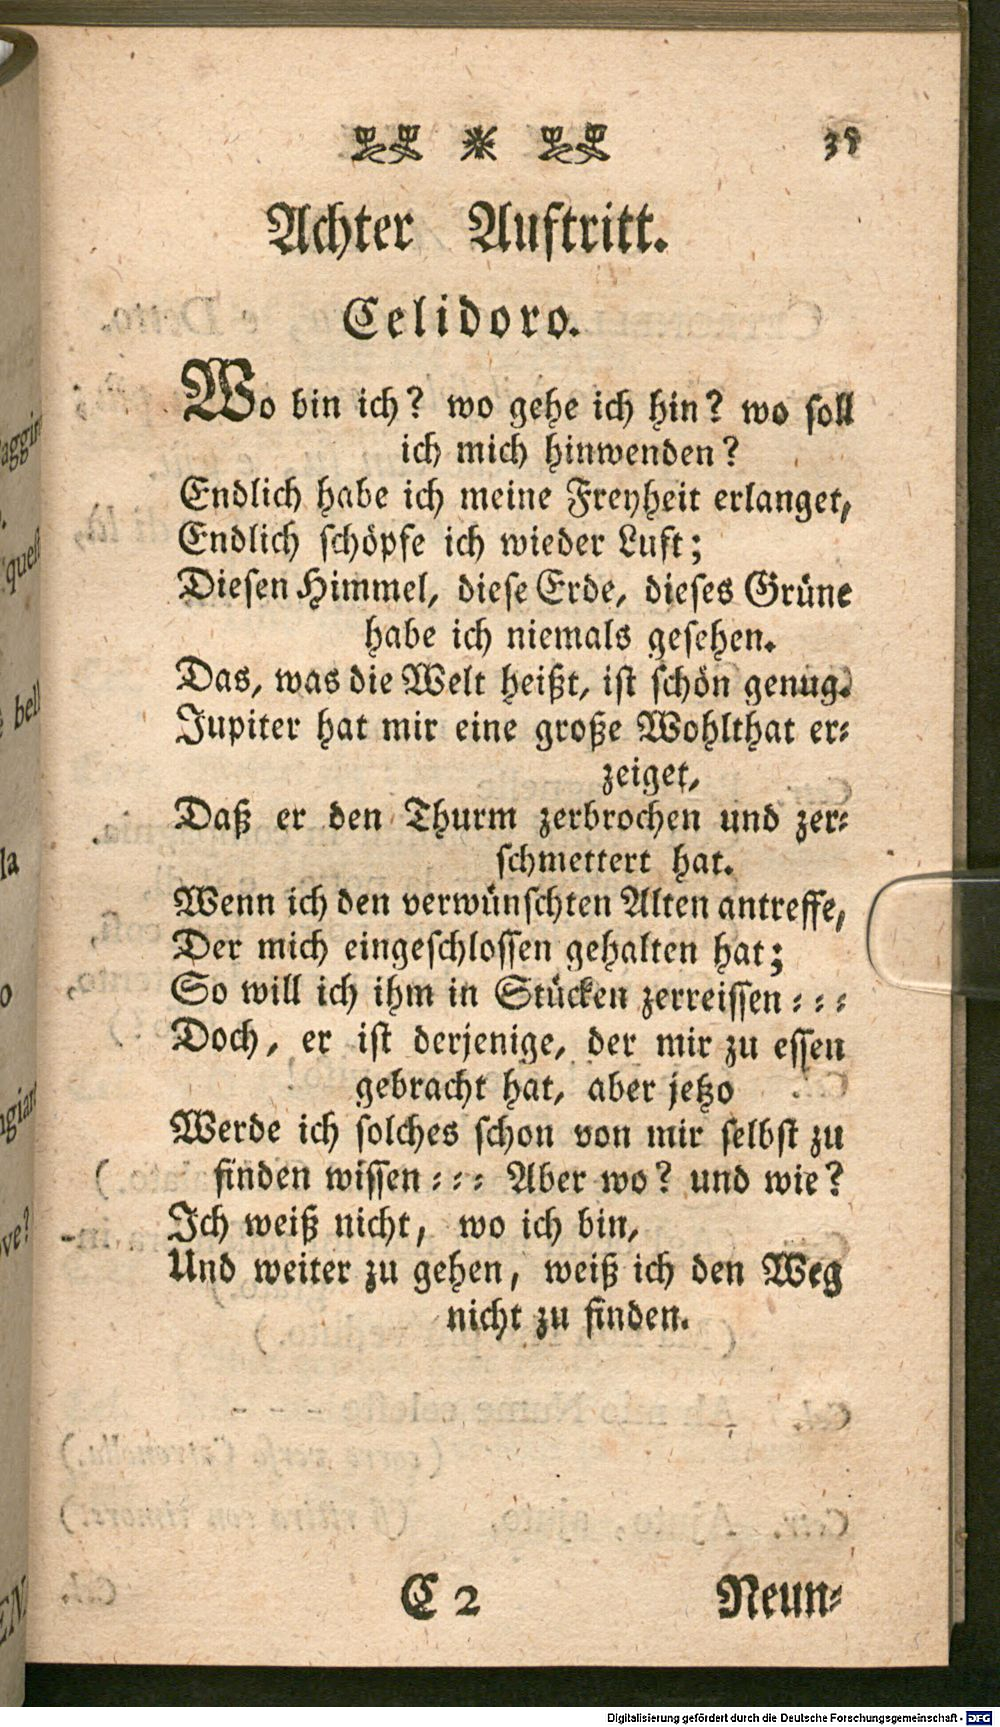 35
Achter Auftritt.
Celidoro.
Wo bin ich? wo gehe ich hin? wo soll
ich mich hinwenden?
Endlich habe ich meine Freyheit erlanget,
Endlich schöpfe ich wieder Luft;
Diesen Himmel, diese Erde, dieses Grüne
habe ich niemals gesehen.
Das, was die Welt heißt, ist schön genug.
Jupiter hat mir eine große Wohlthat er⸗
zeiget,
Daß er den Thurm zerbrochen und zer⸗
schmettert hat.
Wenn ich den verwünschten Alten antreffe,
Der mich eingeschlossen gehalten hat;
So will ich ihm in Stücken zerreissen ⸗ ⸗ ⸗
Doch, er ist derjenige, der mir zu essen
gebracht hat, aber jetzo
Werde ich solches schon von mir selbst zu
finden wissen ⸗ ⸗ ⸗ Aber wo? und wie?
Ich weiß nicht, wo ich bin,
Und weiter zu gehen, weiß ich den Weg
nicht zu finden.
C 2 Neun⸗
Digitalisierung gefördert durch die Deutsche Forschungsgemeinschaft - DFG